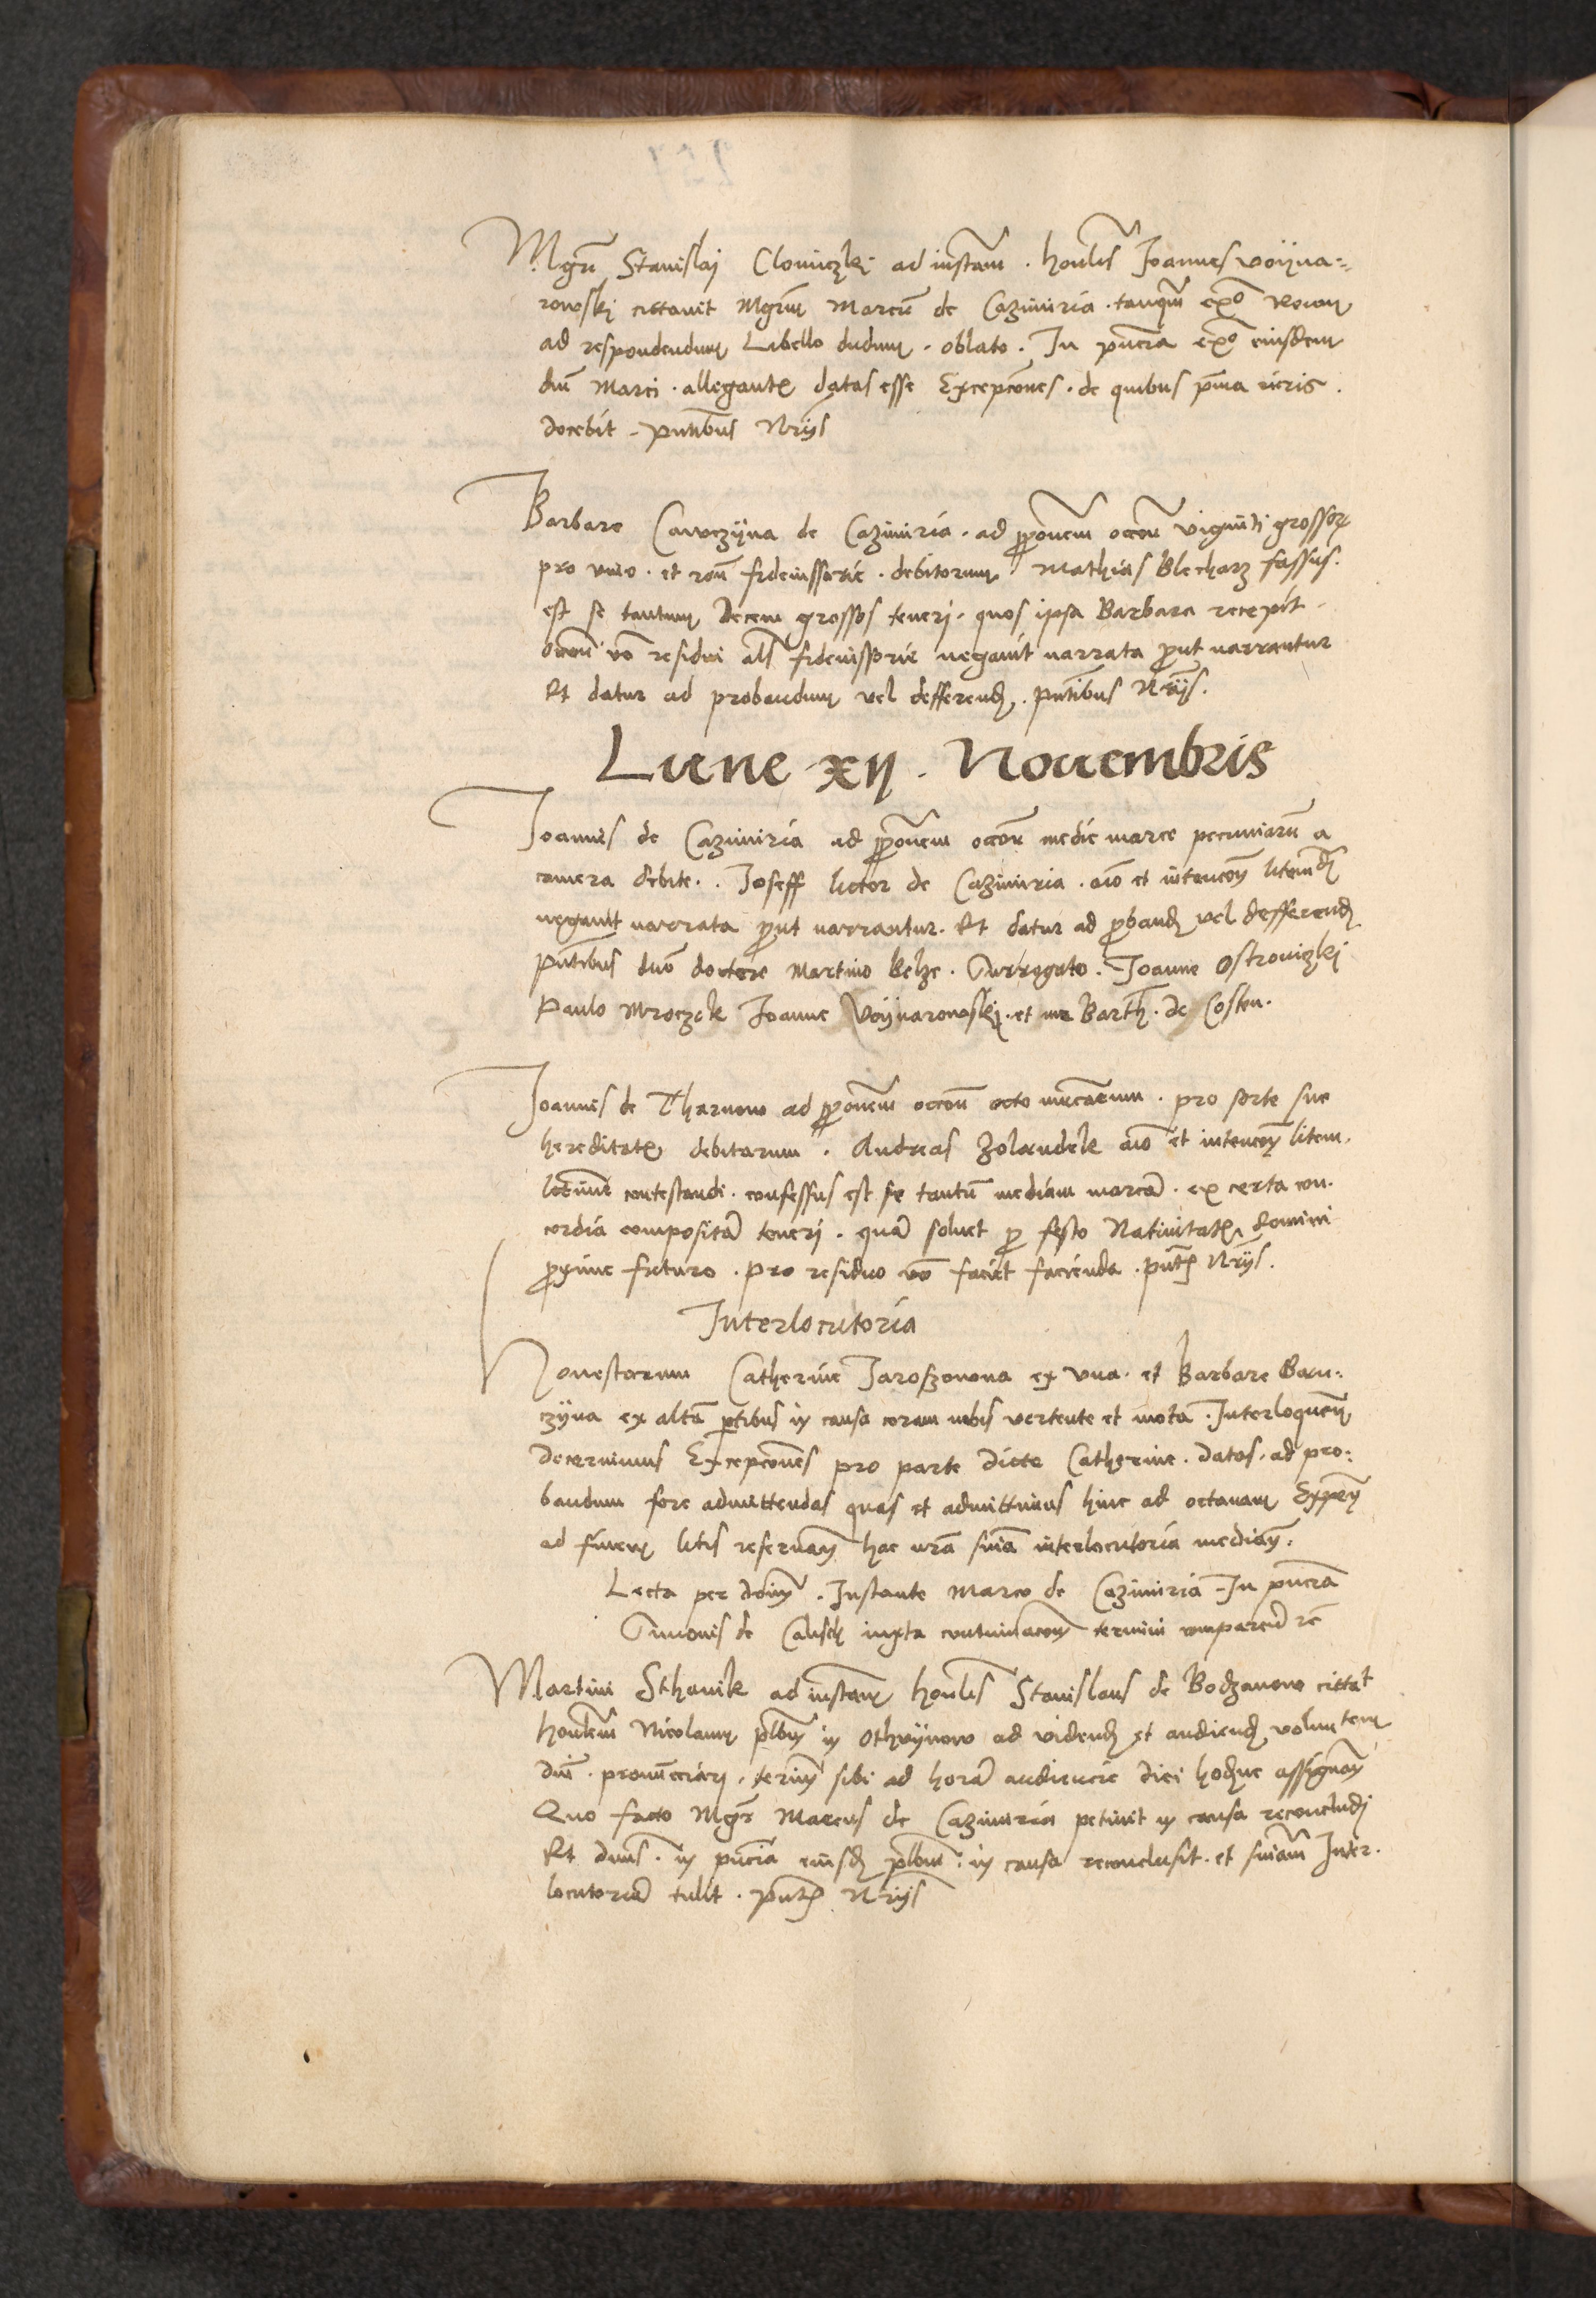 Mgri Stanislaj Clominczki ad instam . honlis Joannes voijna=
rowski cittavit Mgrum Marcum de Cazimiria . tanquam
ad respondendum Libello dudum . oblato . In pncia eiusdem
dni Marci . allegantis datas esse Excepcones . de quibus prima iuris .
docebit . pntibus Nrijs
Barbare de Cazimiria . ad pponem occone viginti grossor
pro . et fideiussorie . debitorum Mathias Blecharz fassus .
est se tantum decem grossos teneri . quos ipsa Barbara recepit .
occone vo residui als fideiussorie negavit narrata prout narrantur
Et datur ad probandum vel defferend . pntibus Nrijs .
Lune . xij . Nouembris
Joannis de Cazimiria ad pponem occone medie marce pecuniarum a
camera debite . Joseff lictor de Cazimiria . aio et intencone litem
negavit narrata prout narrantur . Et datur ad proband vel defferend
Pntibus dno doctore Martino Belze . Surrogato . Joanne Ostrowiczki
Paulo Mroczek Joanne Voijnarowskij . et me Barth . de Costen .
Joannis de Tharnow ad pponem occone octo marcarum . pro sorte sue
hereditatis debitarum . Andreas Zolandek aio et intencone litem .
contestandi . confessus est se tantum mediam marcam . ex certa con .
cordia compositam teneri . quam soluet pro festo Natiuitatis domini
proxime futuro . pro residuo vo faciet facienda . pntibus Nrijs .
Interlocutoria
Honestarum Catherine Jaroszowna ex vna . et Barbare Baru :
czijna ex altera partibus in causa coram nobis vertente et mota . Interloquen
decernimus Excepcones pro parte dicte Catherine . datas . ad pro :
bandum fore admittendas quas et admittimus hinc ad octavam Expen
ad finem litis reservan hac nra snia interlocutoria median .
Lecta per dom . Instante Marco de Cazimiria In pncia
Simonis de iuxta contumacem termini comparend
Martini Sthanik ad instam honlis Stanislaus de Bodzanow cittat
honlem Nicolaum plbm in Othwijnow ad vidend et audiend voluntem
dni . pronuncciari . terim sibi ad horam audiencie diei hodierne assignan
Quo facto Mgr Marcus de Cazimiria petiuit in causa reconcludi
Et dnus . in pncia eiusd plbni in causa reconclusit . et sniam Inter .
locutoriam tulit . pntibus Nrijs